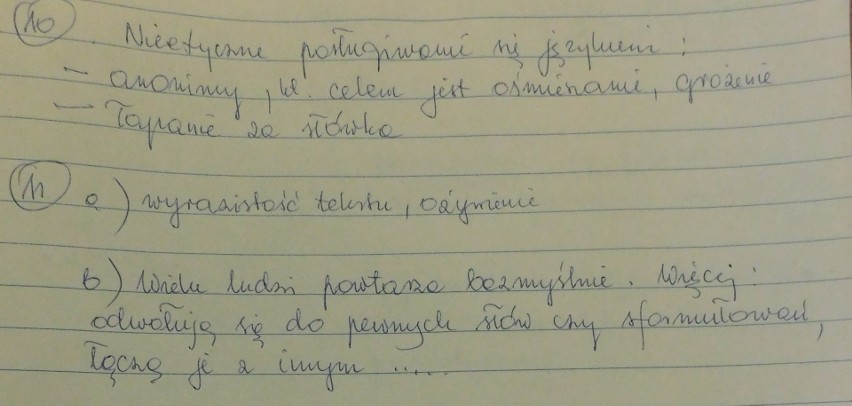 10. Nieetyczne posługiwanie się językiem:
- anonimy, kt. celem jest ośmieszanie, grożenie
- łapanie za słówka
11 a) wyrazistość tekstu, ożywienie
b) Wielu ludzi powtarza bezmyślnie. Więcej:
odwołują się do pewnych słów czy sformułowań,
łączą je z innym .....